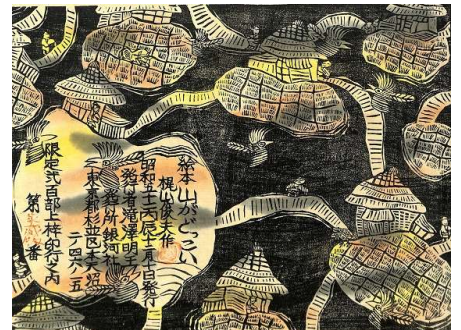 絵本山がどっこい
梶山俊夫作
昭和五十丙辰月日発行
発行者滝澤明
発行所銀河社
東京都杉並区本天沼
二ノ四六ノ五
限定弐百部上梓印行之内
第 番